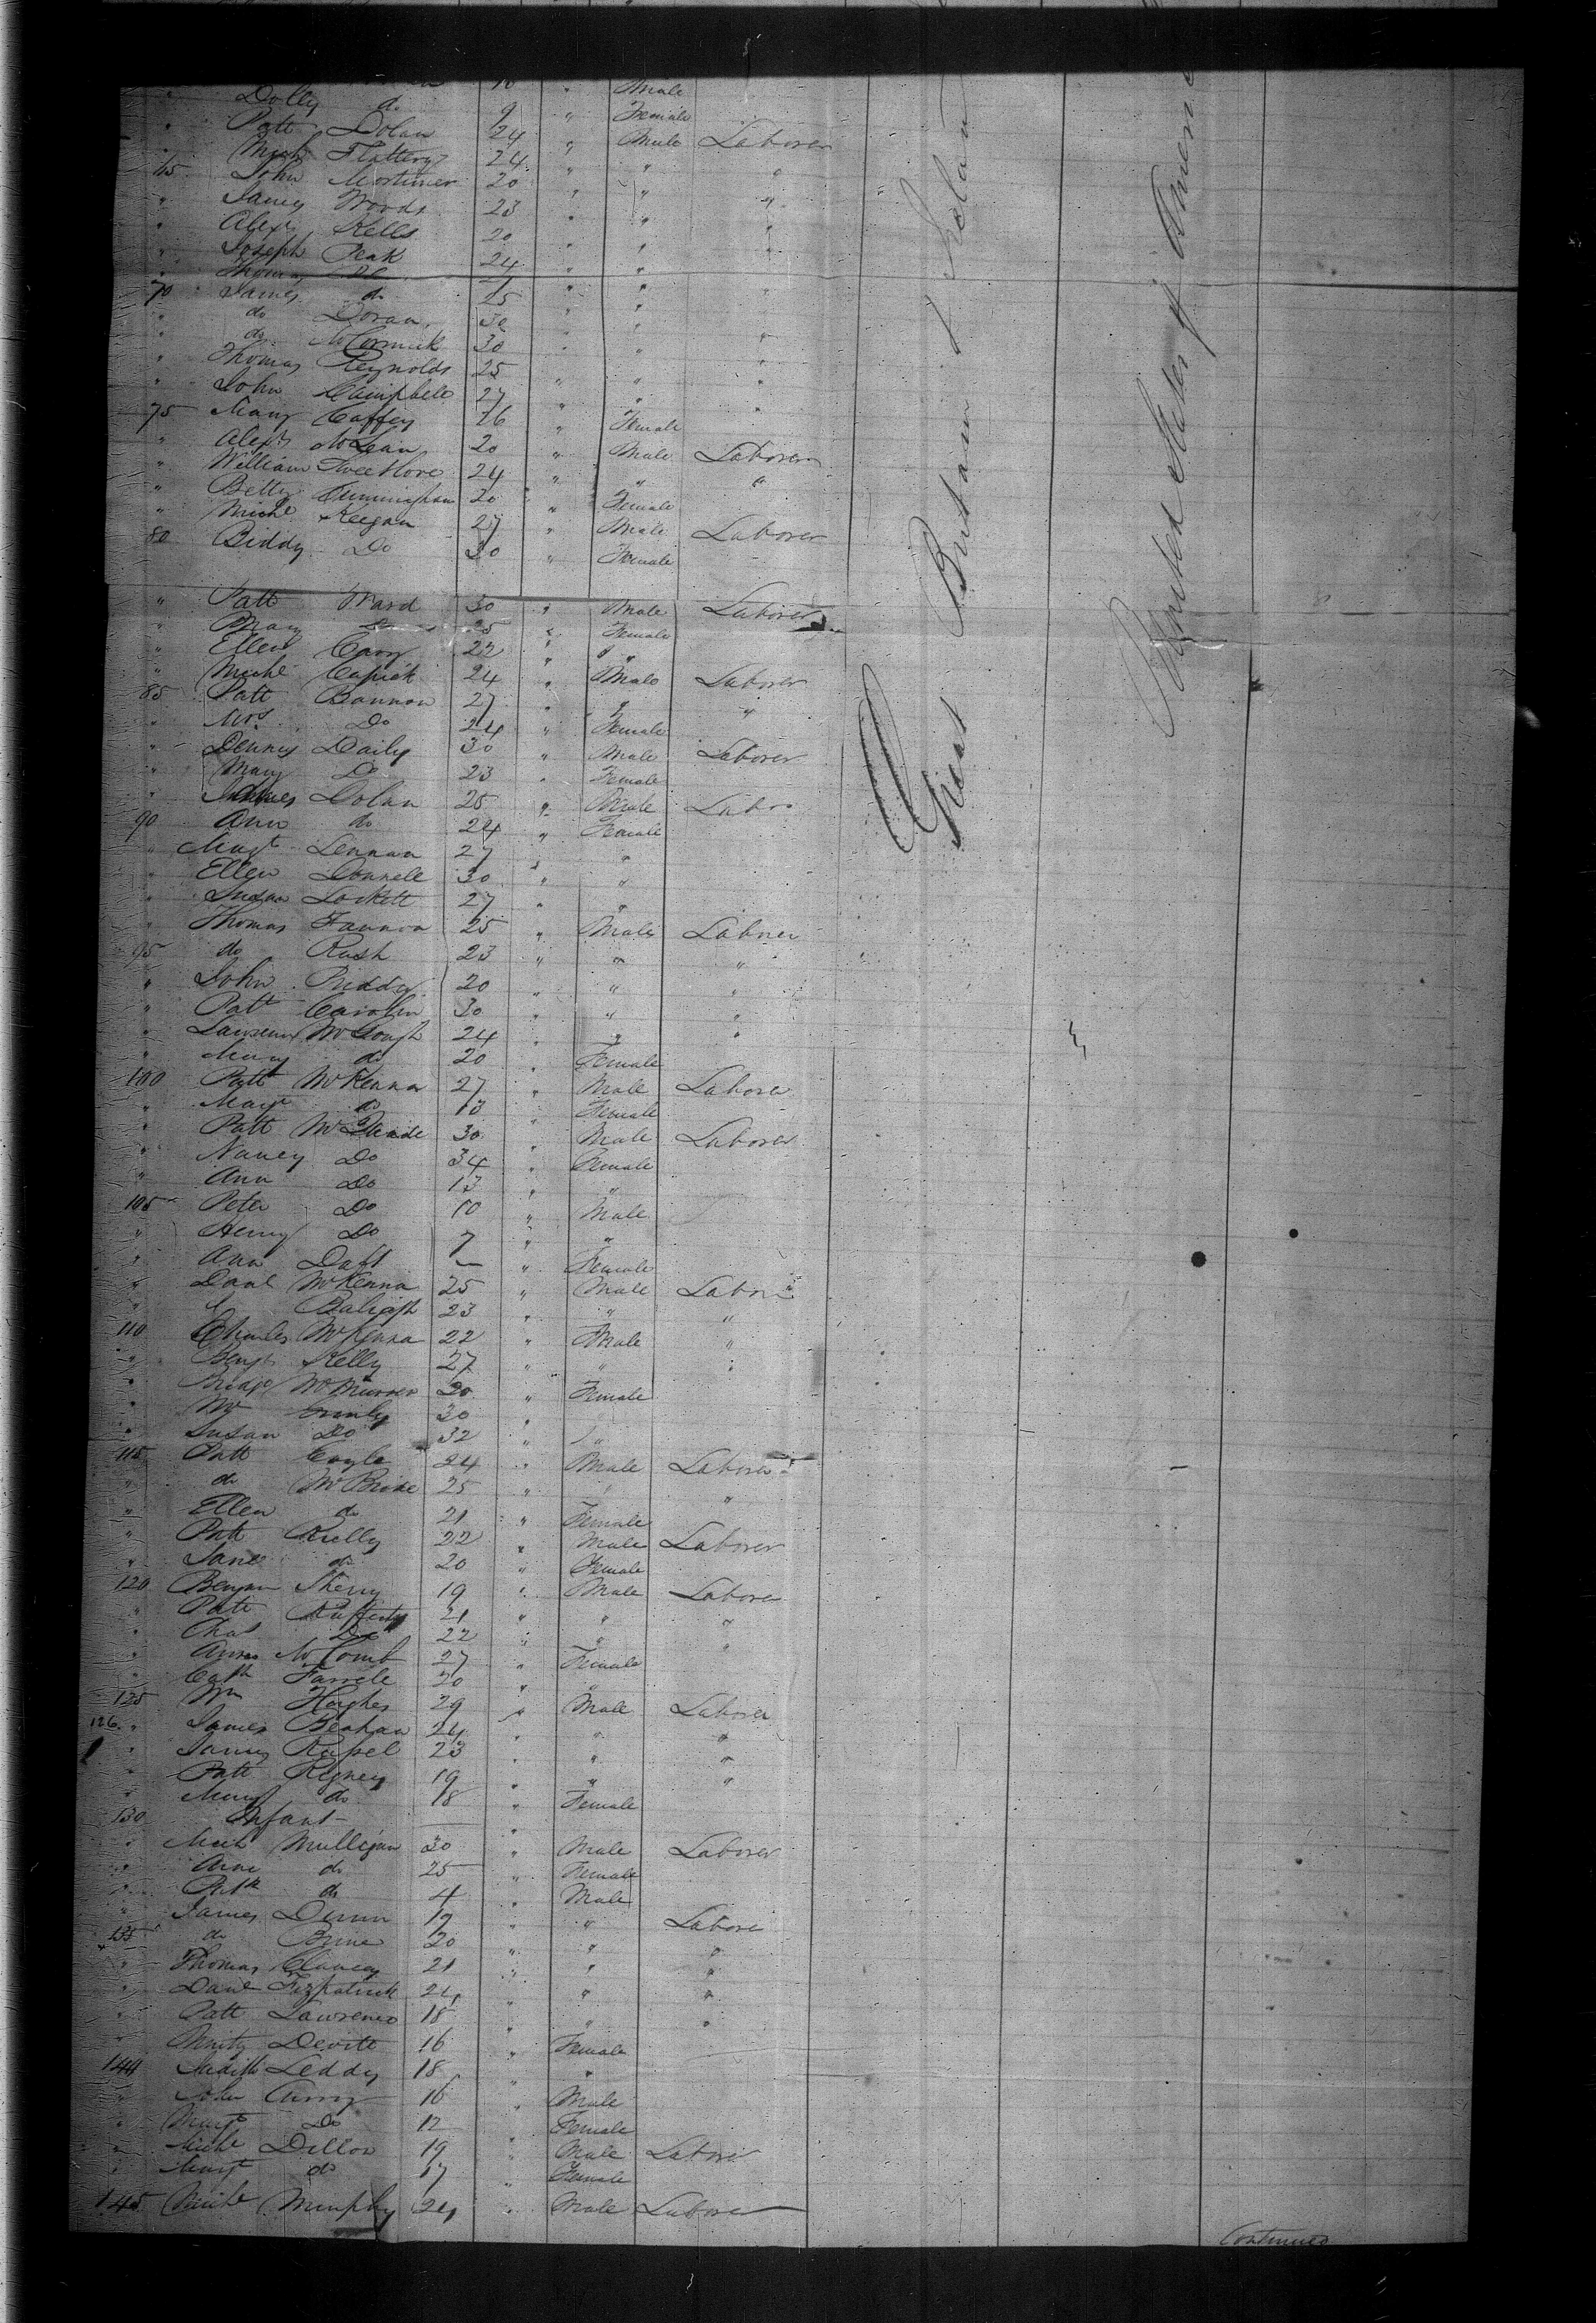 10 " Male
" Dolly do 9 " Female
" Patt Dolan 24 " Male Laborer
" Mich Flattery 24 " " "
65 John Mortimer 20 " " "
" James Woods 23 " " "
" Alexr Kells 20 " " "
" Joseph Peak 24 " "
" Thomas Do " "
70 James do 25 " "
" do Doran 30 " "
" do McCormick 30 " "
" Thomas Reynolds 25 " " "
" John Campbell 27 " " "
75 Mary Caffey 26 " Female
" Alexr McLean 20 " Male Laborer
" William 24 " " "
" Betty Cunningham 20 " Female
" Michl Keegan 27 " Male Laborer
80 Biddy Do 30 " Female
" Patt Ward 30 " Male Laborer
" Mary 25 " Female
" Ellen Cary 22 " "
" Michl 24 " Male Laborer
85 Patt Bannon 27 " " "
" Mrs Do 24 " Female
" Dennis Daily 30 " Male Laborer
" Mary Do 23 " Female
" James Dolan 25 " Male Labor
90 Ann do 24 " Female
" Margt Lennan 27 " "
" Ellen Donnell 30 " "
" Susan Lockett 27 " "
" Thomas Fannon 25 " Male Laborer
95 do Rush 23 " " "
" John Reddy 20 " " "
" Patt Carolin 30 " " "
" Lawrence McGough 24 " " "
" Mary do 20 " Female
100 Patt McKenna 27 " Male Laborer
" Margt do 13 " Female
" Patt 30 " Male Laborer
" Nancy Do 34 " Female
" Ann Do 13 " "
105 Peter Do 10 " Male
" Henry Do 7 " "
" Ann Daft " Female
" Danl McKenna 25 " Male Labor
" 23 " " "
110 Charles McKenna 22 " Male "
" Benjn Kelly 27 " " "
" Bridgt 20 " Female
" 30 "
" Susan Do 32 " "
115 Patt Coyle 24 " Male Laborer
" do McBride 25 " " "
" Ellen do 21 " Female
" Patt Reilly 22 " Male Laborer
" Jane do 20 " Female
120 Benjam Sherry 19 " Male Laborer
" Patt Rafferty 21 " " "
" Chas Do 22 " " "
" Anne McComb 27 " Female
" Cath Farrell 20 " "
125 Wm Hughes 29 " Male Laborer
126 " James Beahan 24 " " "
" James Russel 23 " " "
" Patt Regney 19 " " "
" Mary do 18 " Female
130 Infant "
" Mich Mulligan 30 " Male Laborer
" Anne do 25 " Female
" Patk do 4 " Male
" James Dunn 19 " " Labore
135 do Brine 20 " " "
" Thomas Clancey 21 " " "
" Danl Fitzpatrick 24 " " "
" Patt Lawrence 18 " " "
" Devitt 16 " Female
140 Judith Leddy 18 " "
" John Curry 16 " Male
" Margt Do 12 Female
" Michl Dillon 19 " Male Labore
" Margt do 17 " Female
145 Michl Murphy 24 " Male Laborer
Great Britain & Ireland
United States of America
Continued